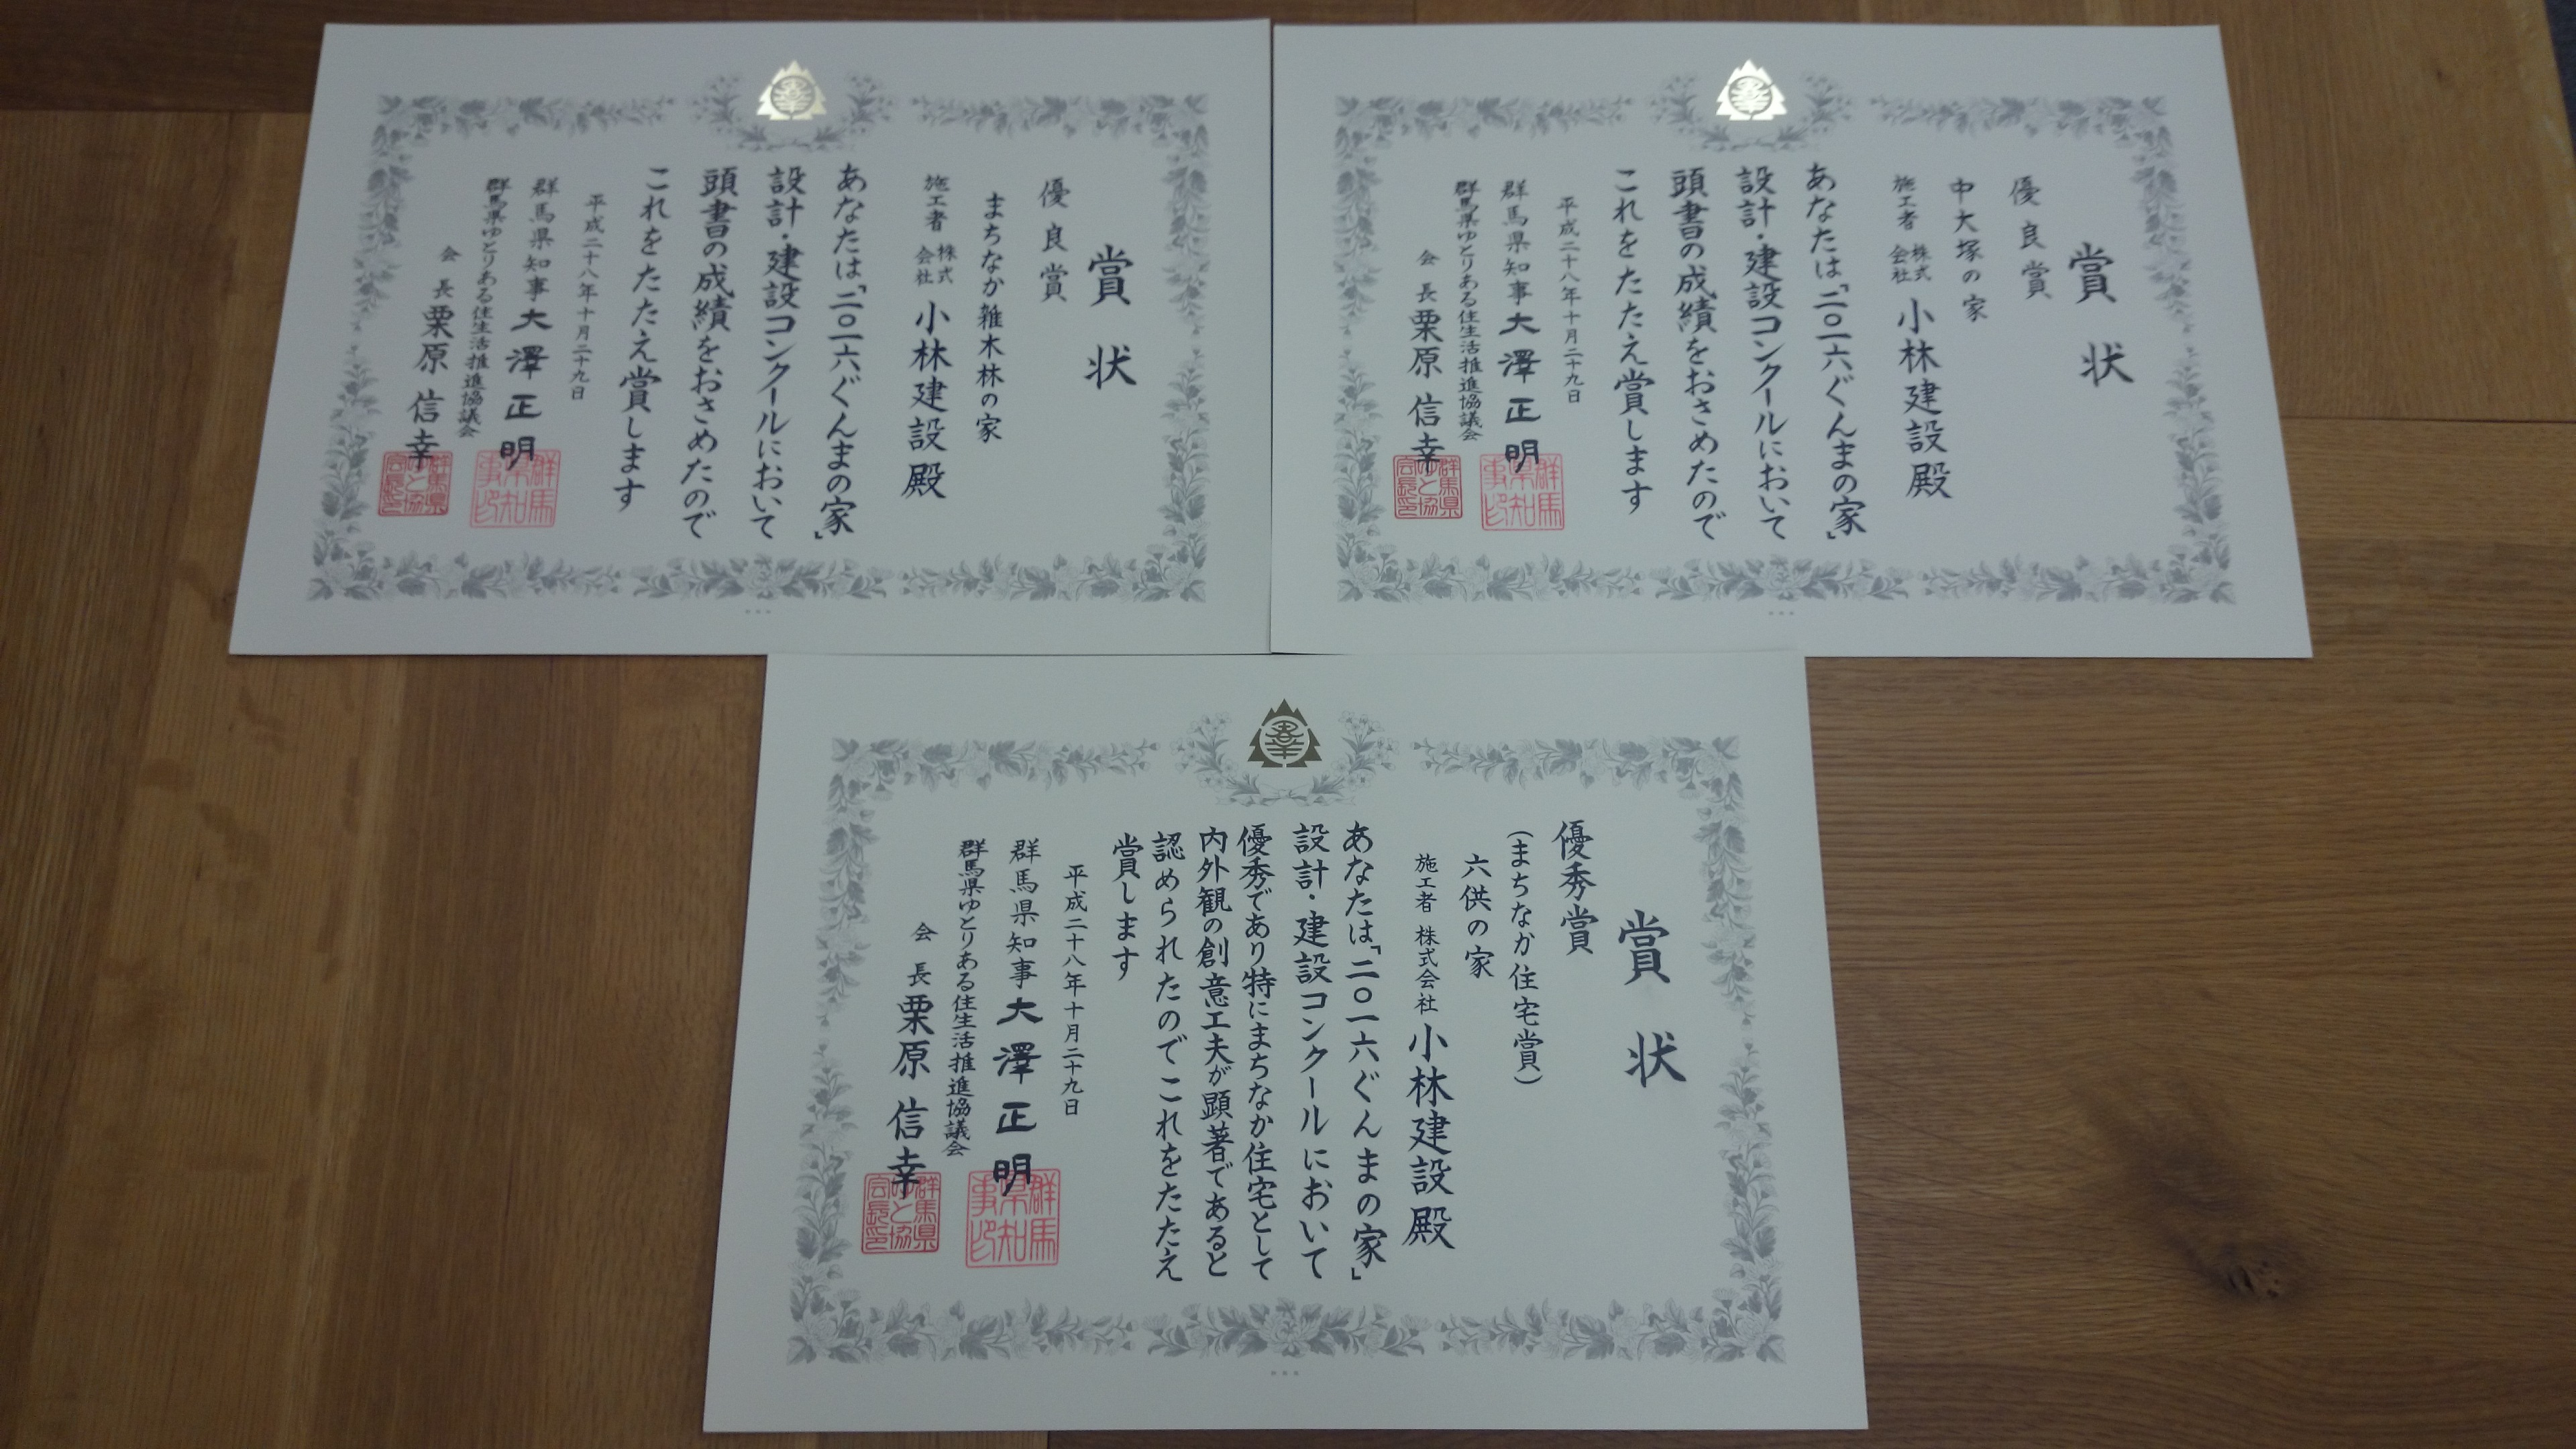 賞状
優良賞
まちなか雑木林の家
施工者 株式会社 小林建設殿
あなたは「二〇一六ぐんまの家」
設計・建設コンクールにおいて
頭書の成績をおさめたので
これをたたえ賞します
平成二十八年十月二十九日
群馬県知事 大澤正明
群馬県ゆとりある住生活推進協議会
会長 栗原信幸
賞状
優良賞
中大塚の家
施工者 株式会社 小林建設殿
あなたは「二〇一六ぐんまの家」
設計・建設コンクールにおいて
頭書の成績をおさめたので
これをたたえ賞します
平成二十八年十月二十九日
群馬県知事 大澤正明
群馬県ゆとりある住生活推進協議会
会長 栗原信幸
賞状
優秀賞
(まちなか住宅賞)
六供の家
施工者 株式会社 小林建設殿
あなたは「二〇一六ぐんまの家」
設計・建設コンクールにおいて
優秀であり特にまちなか住宅として
内外観の創意工夫が顕著であると
認められたのでこれをたたえ
賞します
平成二十八年十月二十九日
群馬県知事 大澤正明
群馬県ゆとりある住生活推進協議会
会長 栗原信幸